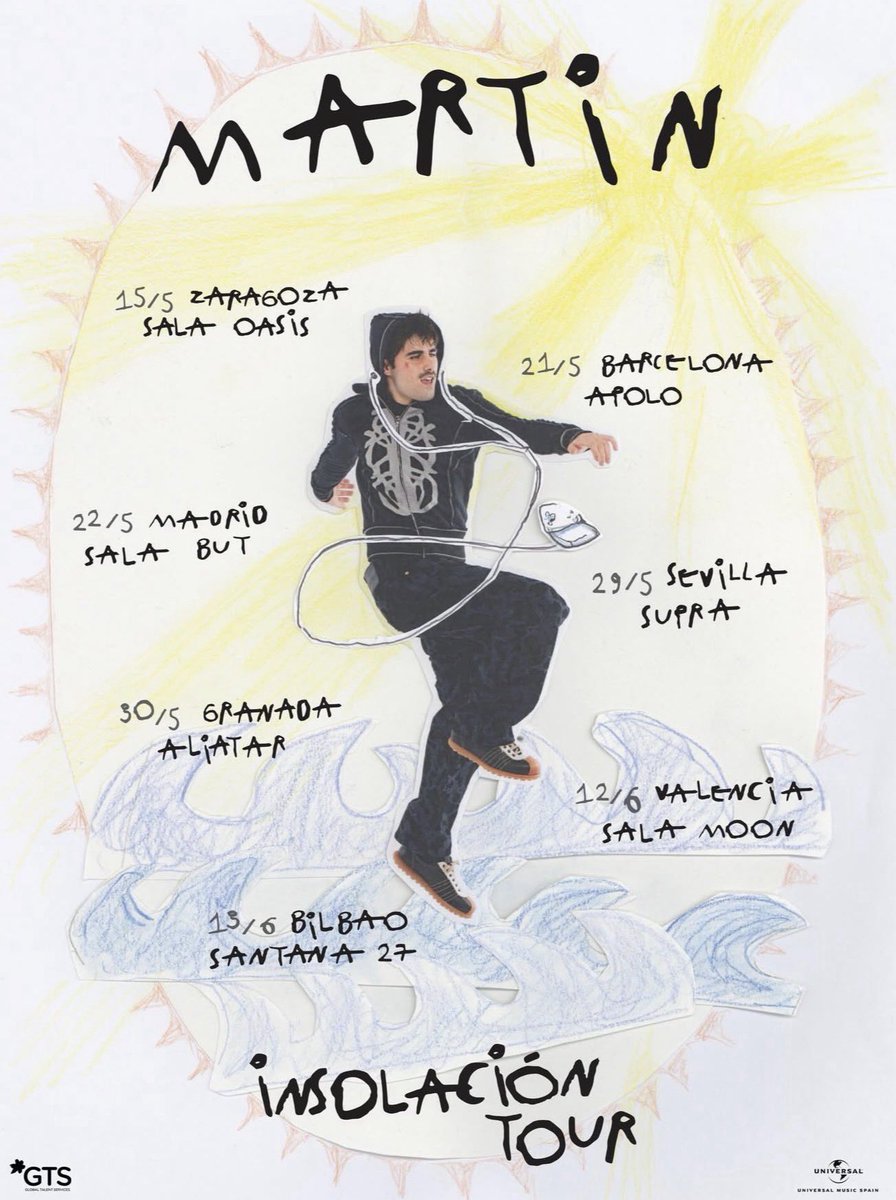 MARTiN
15/5 ZARAGOZA
SALA OASiS
21/5 BARCELONA
APOLO
22/5 MADRID
SALA BUT
29/5 SEViLLA
SUPRA
30/5 GRANADA
ALiATAR
12/6 VALENCiA
SALA MOON
13/6 BiLBAO
SANTANA 27
iNSOLACiÓN
TOUR
GTS
GLOBAL TALENT SERVICES
UNIVERSAL
UNIVERSAL MUSIC SPAIN